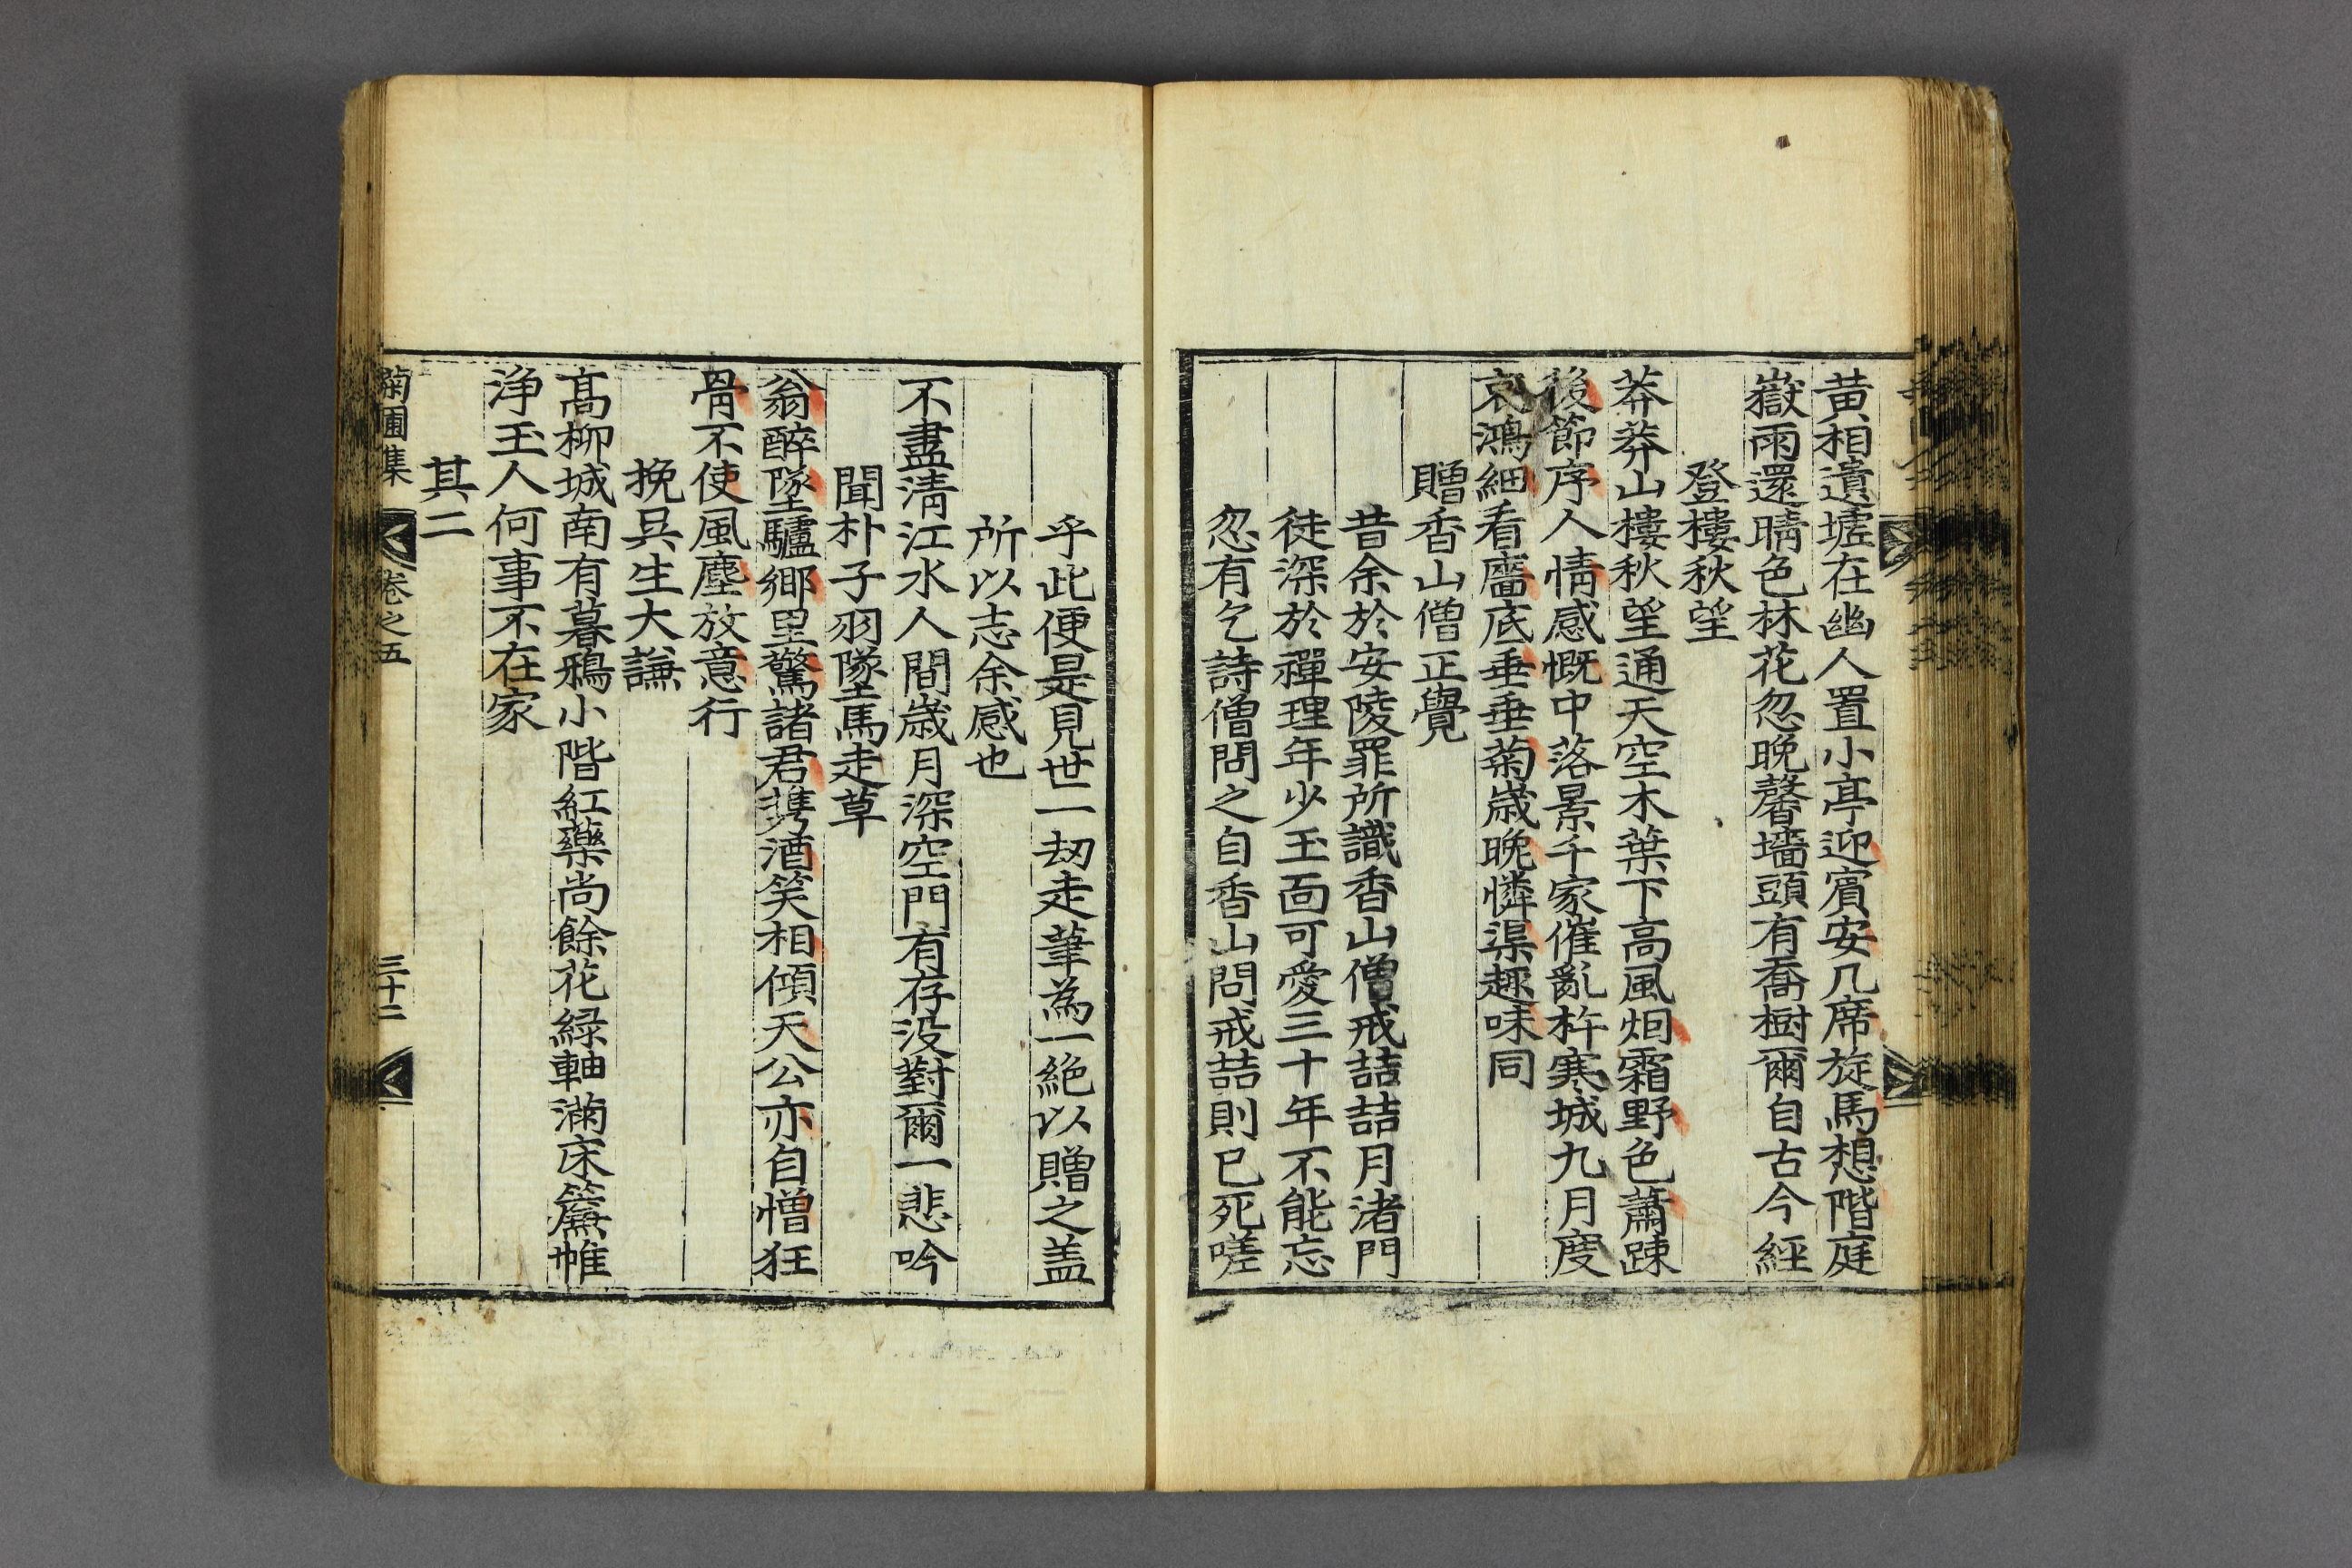 黃相遺墟在幽人置小亭迎賓安几席旋馬想階庭
嶽雨還晴色林花忽晩馨墻頭有喬樹爾自古今經
登樓秋望
莽莽山樓秋望通天空木葉下高風烟霜野色蕭踈
後節序人情感慨中落景千家催亂杵寒城九月度
哀鴻細看廧底垂垂菊歲晩憐渠趣味同
贈香山僧正覺
昔余於安陵罪所識香山僧戒喆喆月渚門
徒深於禪理年少玉面可愛三十年不能忘
忽有乞詩僧問之自香山問戒喆則已死嗟
乎此便是見世一劫走筆為一絶以贈之盖
所以志余感也
不盡淸江水人間歲月深空門有存没對爾一悲吟
聞朴子羽墜馬走草
翁醉墜驢鄕里驚諸君携酒笑相傾天公亦自憎狂
骨不使風塵放意行
挽具生大謙
髙柳城南有暮鴉小階紅藥尚餘花緑軸滿床簾帷
淨玉人何事不在家
其二
菊圃集 卷之五 三十二